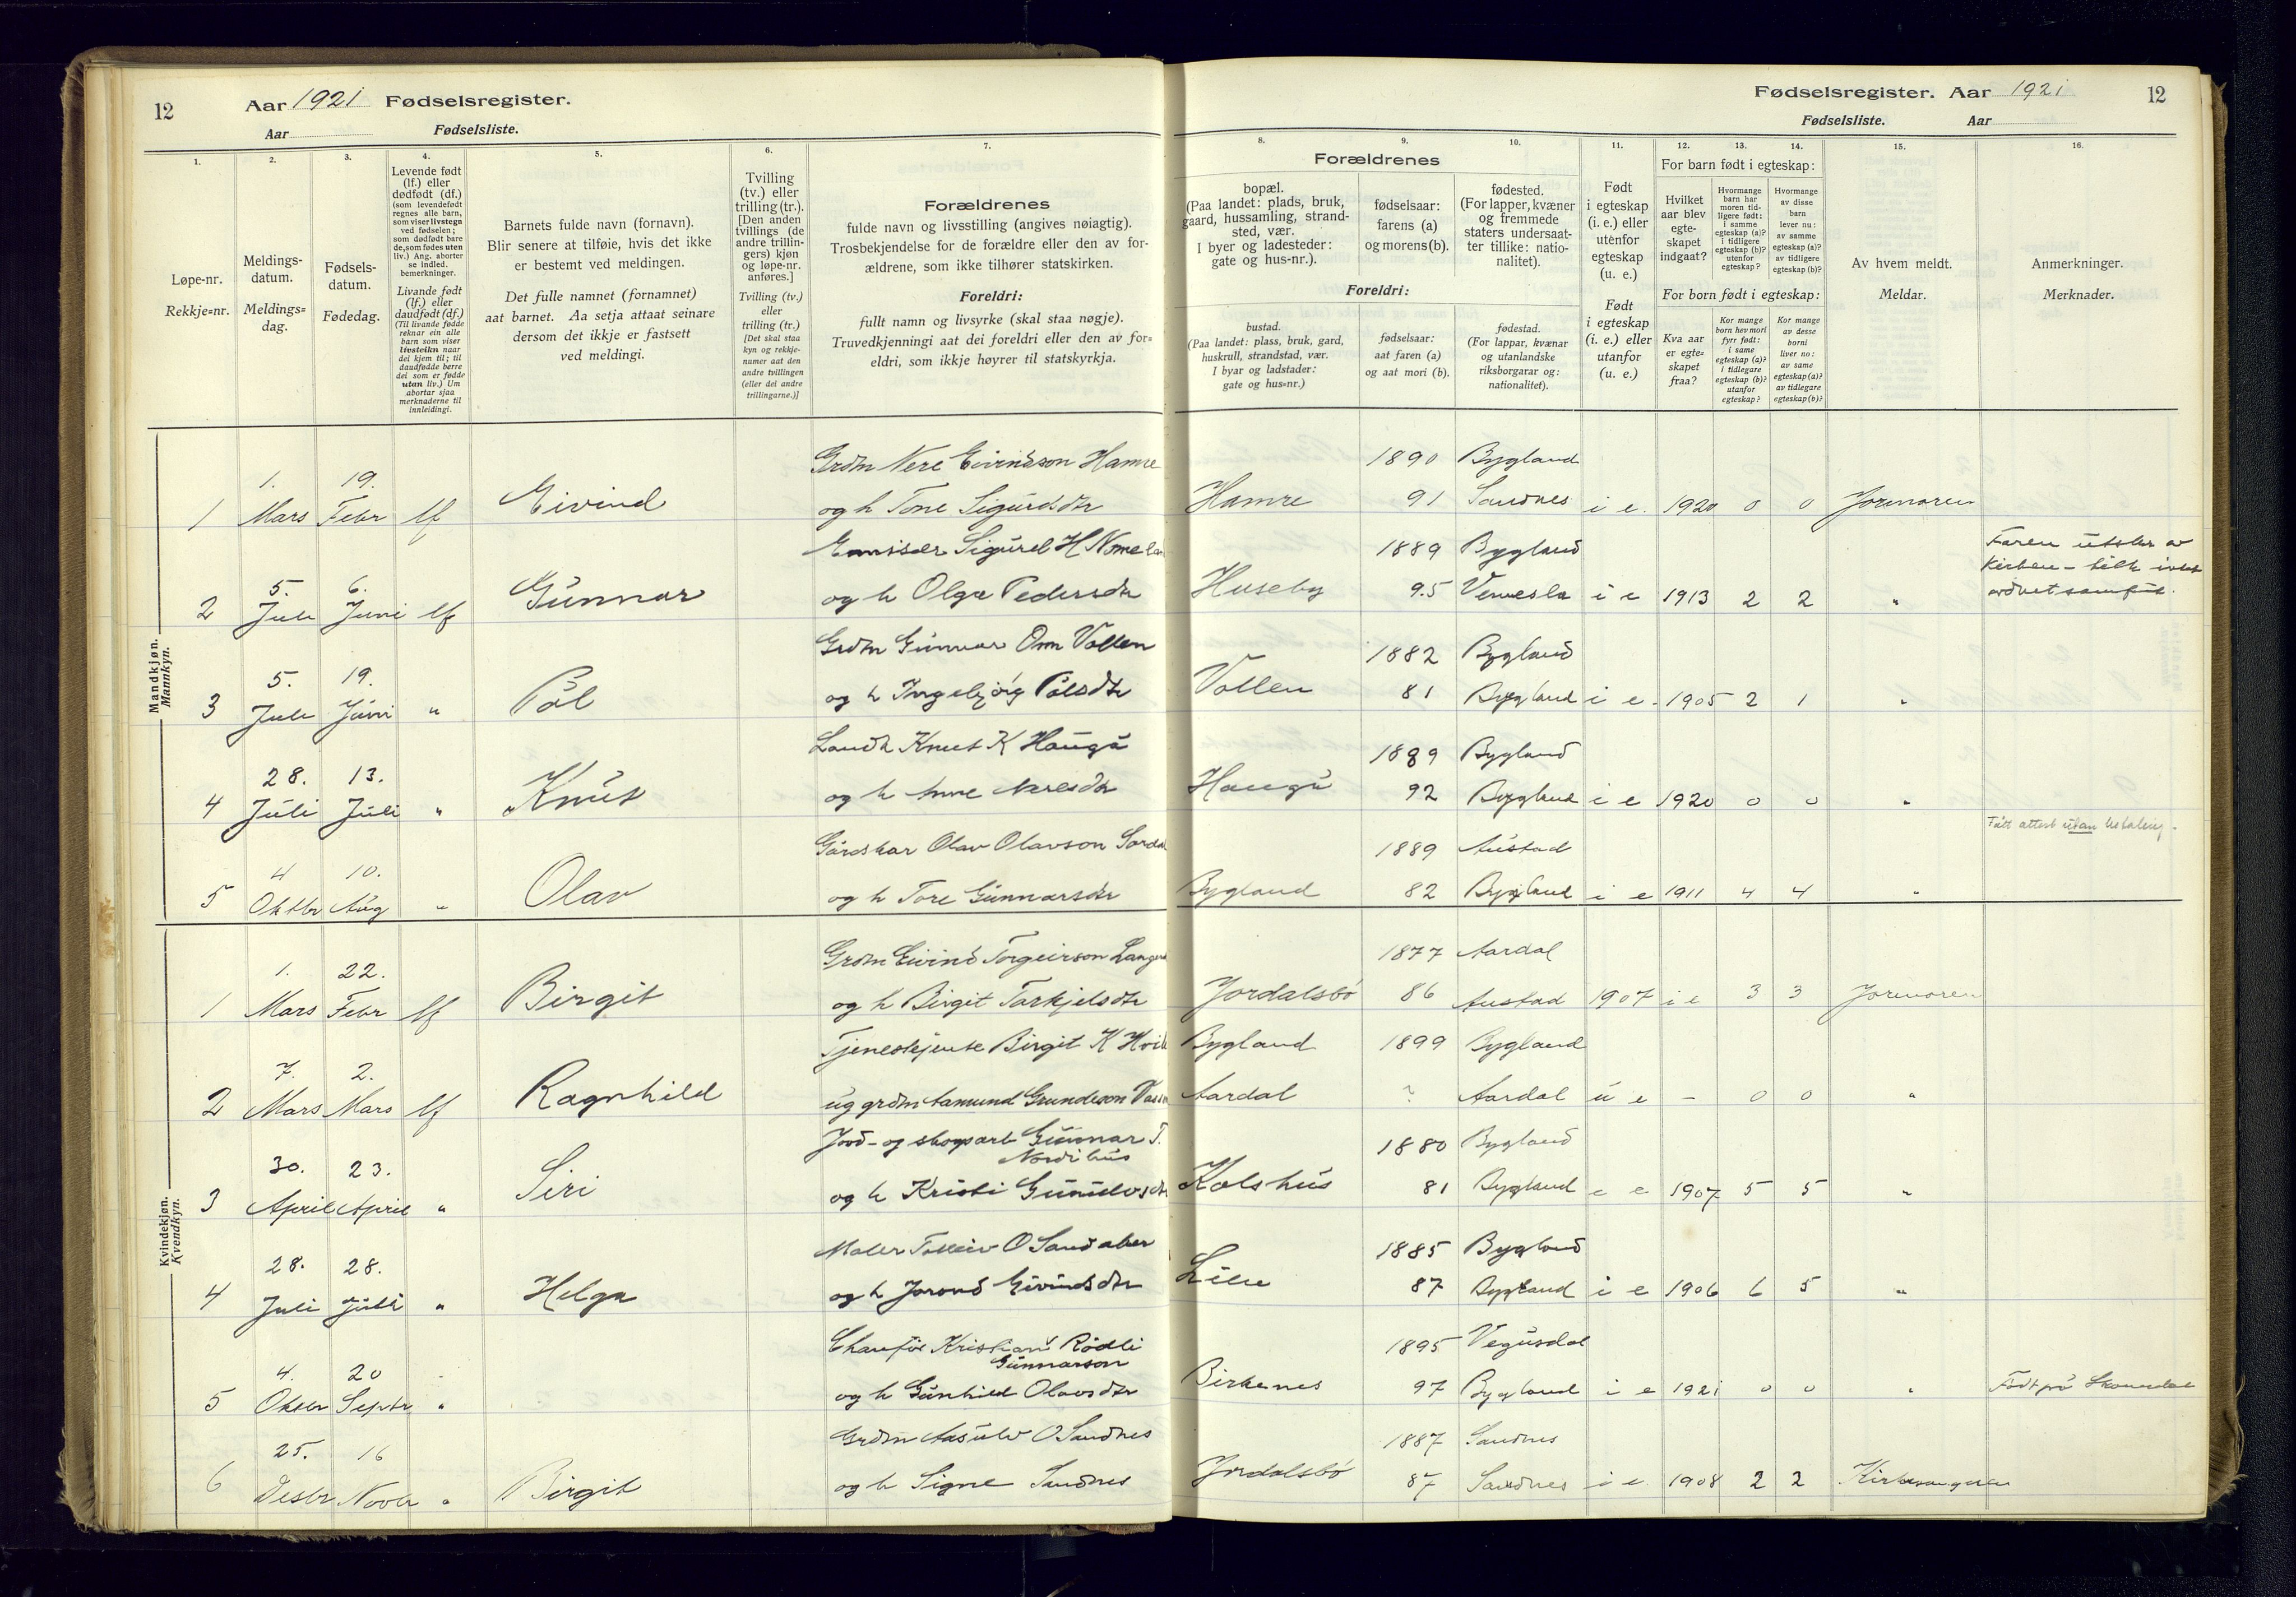 12 Aar 1921 Fødselsregister.
Aar Fødselsliste.
Fødselsregister. Aar 1921 12
Fødselsliste. Aar
1. 2. 3. 4. 5. 6. 7.
Løpe-nr.
Rekkje-nr.
Meldings-
datum.
Meldings-
dag.
Fødsels-
datum.
Fødedag.
Levende født
(lf.) eller
dødfødt (df.)
(som levendefødt
regnes alle barn,
som viser livstegn
ved fødselen;
som dødfødt bare
de, som fødes uten
liv.) Ang. aborter
se indled.
bemerkninger.
Livande født
(lf.) eller
daudfødt (df.)
(Til livande fødde
reknar ein alle
barn som viser
livsteikn naar
dei kjem til; til
daudfødde berre
dei som er fødde
utan liv.) Um
abortar sjaa
merknaderne til
innleidingi.
Barnets fulde navn (fornavn).
Blir senere at tilføie, hvis det ikke
er bestemt ved meldingen.
Det fulle namnet (fornamnet)
aat barnet. Aa setja attaat seinare
dersom det ikkje er fastsett
ved meldingi.
Tvilling
(tv.) eller
trilling (tr.).
[Den anden
tvillings (de
andre trillin-
gers) kjøn
og løpe-nr.
anføres.]
Tvilling (tv.)
eller
trilling (tr.)
[Det skal staa
kyn og rekkje-
numer aat den
andre tvillingen
(eller dei andre
trillingarne.)]
Forældrenes
fulde navn og livsstilling (angives nøiagtig).
Trosbekjendelse for de forældre eller den av for-
ældrene, som ikke tilhører statskirken.
Foreldri:
fullt namn og livsyrke (skal staa nøgje).
Truvedkjenningi aat dei foreldri eller den av for-
eldri, som ikkje høyrer til statskyrkja.
8. 9. 10. 11. 12. 13. 14. 15. 16.
Forældrenes
bopæl.
(Paa landet: plads, bruk,
gaard, hussamling, strand-
sted, vær.
I byer og ladesteder:
gate og hus-nr.).
fødselsaar:
farens (a)
og morens (b).
fødested.
(For lapper, kvæner
og fremmede
staters undersaat-
ter tillike: natio-
nalitet).
Foreldri:
bustad.
(Paa landet: plass, bruk, gard,
huskrull, strandstad, vær.
I byar og ladstader:
gate og hus-nr.)
fødselsaar:
aat faren (a)
og aat mori (b).
fødestad.
(For lappar, kvænar
og utanlandske
riksborgarar og:
nationalitet).
Født
i egteskap
(i. e.) eller
utenfor
egteskap
(u. e.)
Født
i egteskap
(i. e.) eller
utanfor
(u. e.)
For barn født i egteskap:
Hvilket
aar blev
egte-
skapet
indgaat?
Hvormange
barn har
moren tid-
ligere født:
i samme
egteskap (a)?
i tidligere
egteskap (b)?
utenfor
egteskap?
Hvormange
av disse
barn
lever nu:
av samme
egteskap (a)?
av tidligere
egteskap (b)?
For born født i egteskap:
Kva aar
er egte-
skapet
fraa?
Kor mange
born hev mori
fyrr født:
i same
egteskap (a)?
i tidlegare
egteskap (b)?
utanfor
egteskap?
Kor mange
av desse
borni
liver no:
av same
egteskap (a)?
av tidlegare
egteskap (b)?
Av hvem meldt.
Meldar.
Anmerkninger.
Merknader.
Mandkjøn.
Mannkyn.
1. 19. Grdm Nere Eivindson Hamre 1890 Bygland
1 Mars Febr lf Eivind og h Tone Sigurdsdtr Hamre 91 Sandnes i e. 1920 0 0 Jormoren
Sigurd H Nomeland 1889 Bygland Faren utstr av
5. 6. Kirken
2 Juli Juni lf Gunnar og h Olga Pedersdtr Huseby 95 Vennesla i e 1913 2 2 "
Grdm Gunnar Osm Vollen 1882 Bygland
5. 19.
3 Juli Juni " Pål og h Ingebjörg Pålsdtr Vollen 81 Bygland i e. 1905 2 1 "
Landh Knut K Haugå 1889 Bygland
28. 13.
4 Juli Juli " Knut og h Anne Neresdtr Haugå 92 Bygland i e 1920 0 0 "
Fått attest utan betaling.
Gårdskar Olav Olavson 1889 Austad
4 10.
5 Oktbr Aug " Olav og h Tore Gunnarsdtr Bygland 82 Bygland i e 1911 4 4 "
Kvindekjøn.
Kvendkyn.
Grdm Eivind Torgeirson 1877 Aardal
1. 22.
1 Mars Febr lf Birgit og h Birgit Tarkjelsdtr Jordalsbö 86 Austad 1907 i e 3 3 Jormoren
Tjenestejente Birgit K Bygland 1899 Bygland
7. 2.
2 Mars Mars lf Ragnhild ug grdm Aamund Grundeson Aardal ? Aardal u e – 0 0 "
Jord- og skogsarb Gunnar T. 1880 Bygland
Nordihus
30. 23.
3 April April " Siri og h Kristi Gunulvsdtr Kolshus 81 Bygland e e 1907 5 5 "
Maler Tolleiv O Sandaker 1885 Bygland
28. 28.
4 Juli Juli " Helga og h Jorond Eivindsdtr Lien 87 Bygland i e 1906 6 5 "
Chauför Kristian Rödli 1895 Vegusdal
Gunnarson
4. 20
5 Oktbr Septr " og h Gunhild Olavsdtr Birkenes 97 Bygland i e 1921 0 0 " Födt på
Grdm Aasulv O Sandnes 1887 Sandnes
25. 16
6 Desbr Novbr " Birgit og h Signe Sandnes Jordalsbö 87 Sandnes i e 1908 2 2 Kirkesangeren